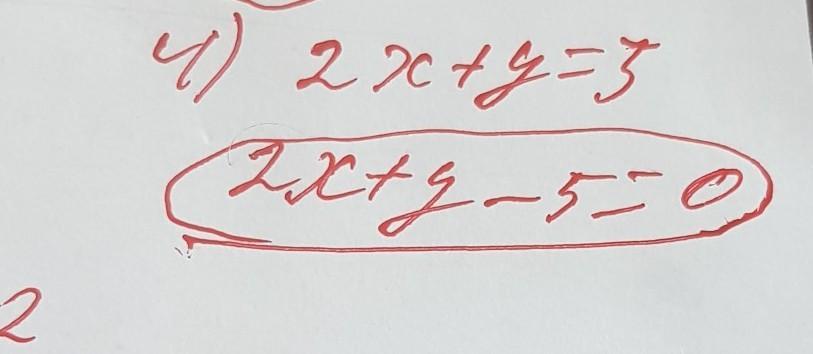 4) 2x+y=5
2x+y-5=0
2